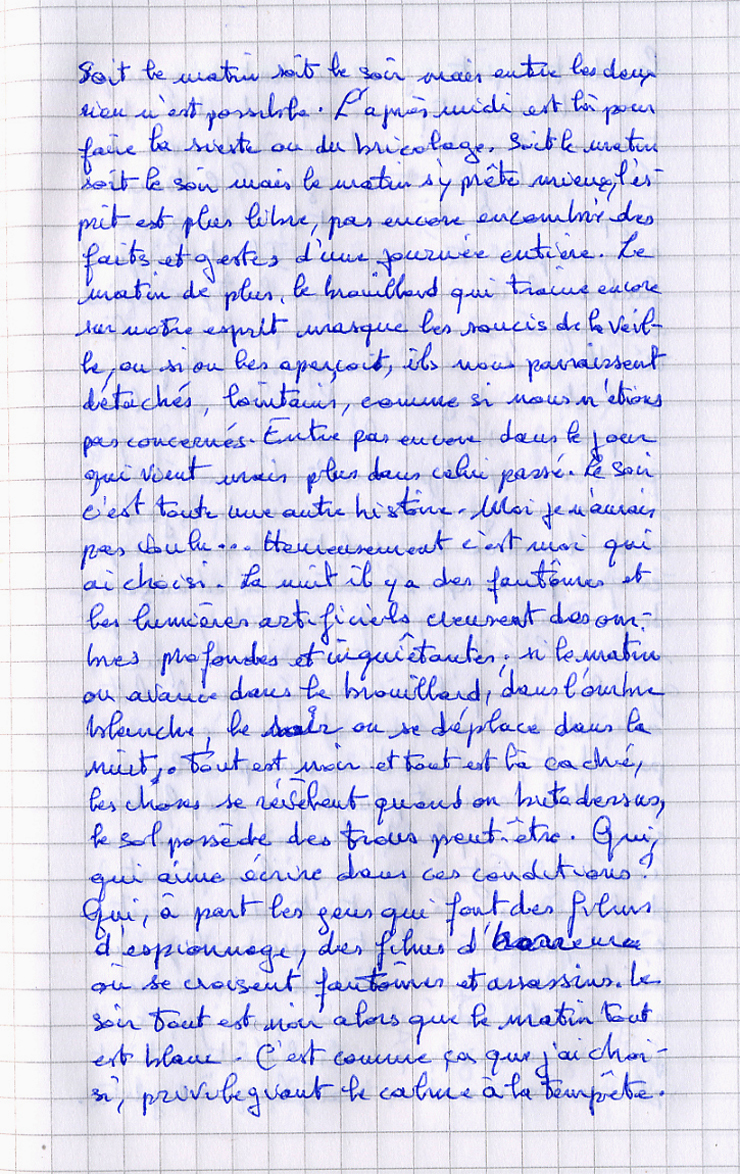 Soit le matin soit le soir mais entre les deux
rien n'est possible. L'après midi est là pour
faire la sieste ou du bricolage. Soit le matin
soit le soir mais le matin s'y prête mieux, l'es-
prit est plus libre, pas encore encombré des
faits et gestes d'une journée entière. Le
matin de plus, le brouillard qui traine encore
sur notre esprit masque les soucis de la veil-
le, ou si on les aperçoit, ils nous paraissent
détachés, lointains, comme si nous n'étions
pas concernés. Entre pas encore dans le jour
qui vient mais plus dans celui passé. Le soir
c'est toute une autre histoire. Moi je n'aurais
pas voulu... Heureusement c'est moi qui
ai choisi. La nuit il y a des fantômes et
les lumières artificiels creusent des om-
bres profondes et inquiêtantes; si le matin
on avance dans le brouillard, dans l'ombre
blanche, le soir on se déplace dans la
nuit. Tout est noir et tout est là caché,
les choses se révèlent quand on bute dessus,
le sol possède des trous peut-être. Qui,
qui aime écrire dans ces conditions?
Qui, à part les gens qui font des films
d'espionnage, des films d'horreur
où se croisent fantômes et assassins. Le
soir tout est noir alors que le matin tout
est blanc. C'est comme ça que j'ai choi-
si, privilegiant le calme à la tempête.